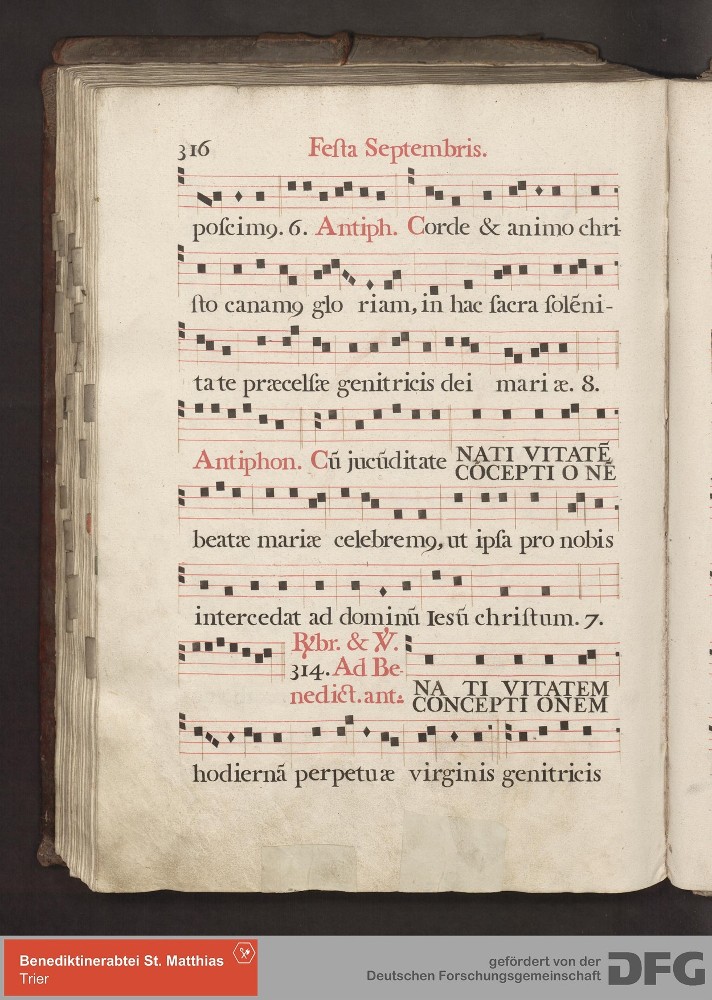 316 Feſta Septembris.
poſcimꝯ. 6. Antiph. Corde & animo chri
ſto canamꝯ glo riam, in hac ſacra ſolẽni-
ta te præcelſæ genitricis dei mari æ. 8.
Antiphon. Cũ jucũditate NATI VITATẼ
CÕCEPTI O NẼ
beatæ mariæ celebremꝯ, ut ipſa pro nobis
intercedat ad dominũ Ieſũ chriſtum. 7.
℟br. & ℣.
314. Ad Be-
nedict. ant. NA TI VITATEM
CONCEPTI ONEM
hodiernã perpetuæ virginis genitricis
Benediktinerabtei St. Matthias
Trier
gefördert von der
Deutschen Forschungsgemeinschaft
DFG